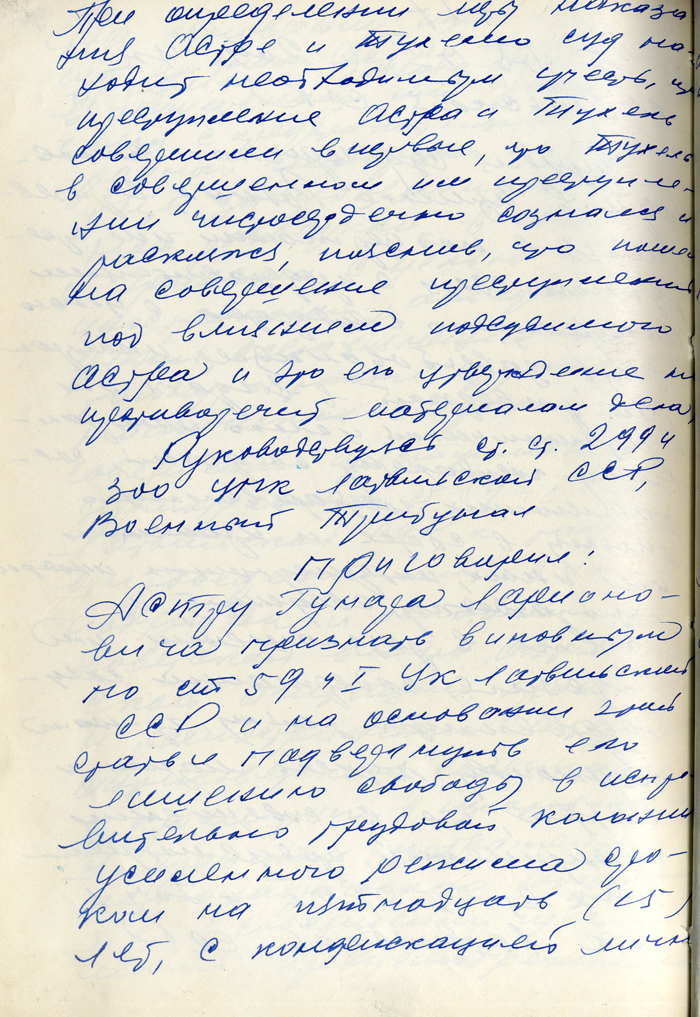 При определении меры наказа
ния Астре и Тухелю суд на-
ходит необходимым учесть, что
преступление Астра и Тухель
совершили впервые, что Тухель
в совершенном им преступле-
нии чистосердечно сознался и
раскаялся, пояснив, что пошел
на совершение преступления
под влиянием подсудимого
Астра и это его утверждение не
противоречит материалам дела,
Руководствуясь ст. ст. 299 и
300 УПК Латвийской ССР,
Военный Трибунал
приговорил:
Астру Гунара Ларионо-
вича признать виновным
по ст 59 ч I УК Латвийской
ССР и на основании этой
статьи подвергнуть его
лишению свободы в испра
вительно трудовой колонии
усиленного режима сро-
ком на пятнадцать (15)
лет, с конфискацией личн